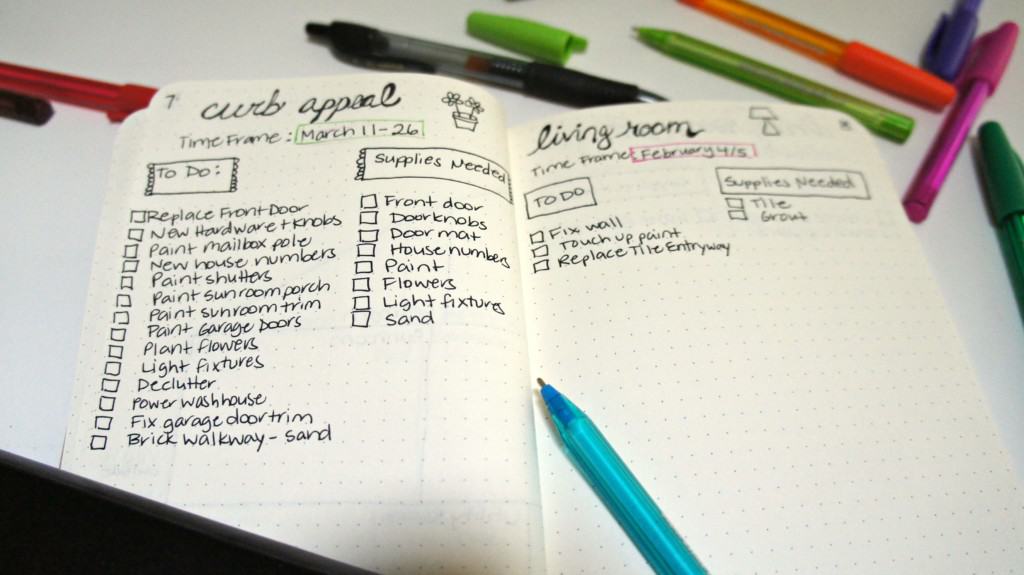 7
curb appeal
Time Frame: March 11-26
To Do:
Replace Front Door
New Hardware + Knobs
Paint mailbox pole
New house numbers
Paint shutters
Paint sunroom porch
Paint sunroom trim
Paint Garage Doors
Plant flowers
Light fixtures
Declutter
Power wash house
Fix garage door trim
Brick walkway - sand
Supplies Needed
Front door
Doorknobs
Door mat
House numbers
Paint
Flowers
Light fixtures
Sand
living room
Time Frame: February 4/5
To Do
Fix wall
Touch up paint
Replace Tile Entryway
Supplies Needed
Tile
Grout